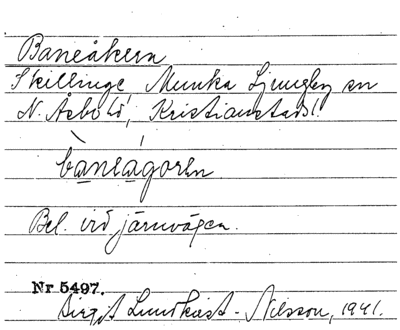 Baneåkern
Skillinge, Munka Ljungby sn
N. Åsbo hd, Kristianstads l.
ba̲nea̲goren
Bel. vid järnvägen.
Nr 5497.
Birgit Lundkvist-Nilsson, 1941.